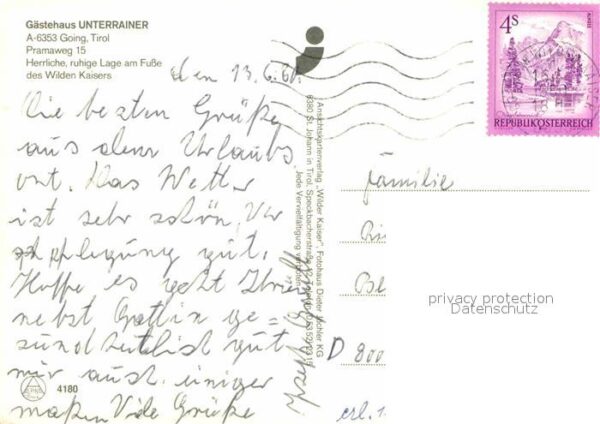 Gästehaus UNTERRAINER
A-6353 Going, Tirol
Pramaweg 15
Herrliche, ruhige Lage am Fuße
des Wilden Kaisers
den 13.6.
Die besten Grüße
aus dem Urlaubs
ort. Das Wetter
ist sehr schön, Ver
pflegung gut.
Hoffe es geht Ihnen
nebst Gattin ge=
sundheitlich gut
mir auch einiger
maßen Viele Grüße
Josef
4180
Ansichtskartenverlag „Wilder Kaiser", Fotohaus Dieter Jöchler KG
6380 St. Johann in Tirol, Speckbacherstraße
Jede Vervielfältigung verboten
4S
REPUBLIK ÖSTERREICH
Familie
Bl
D 800
erl. 1
privacy protection
Datenschutz